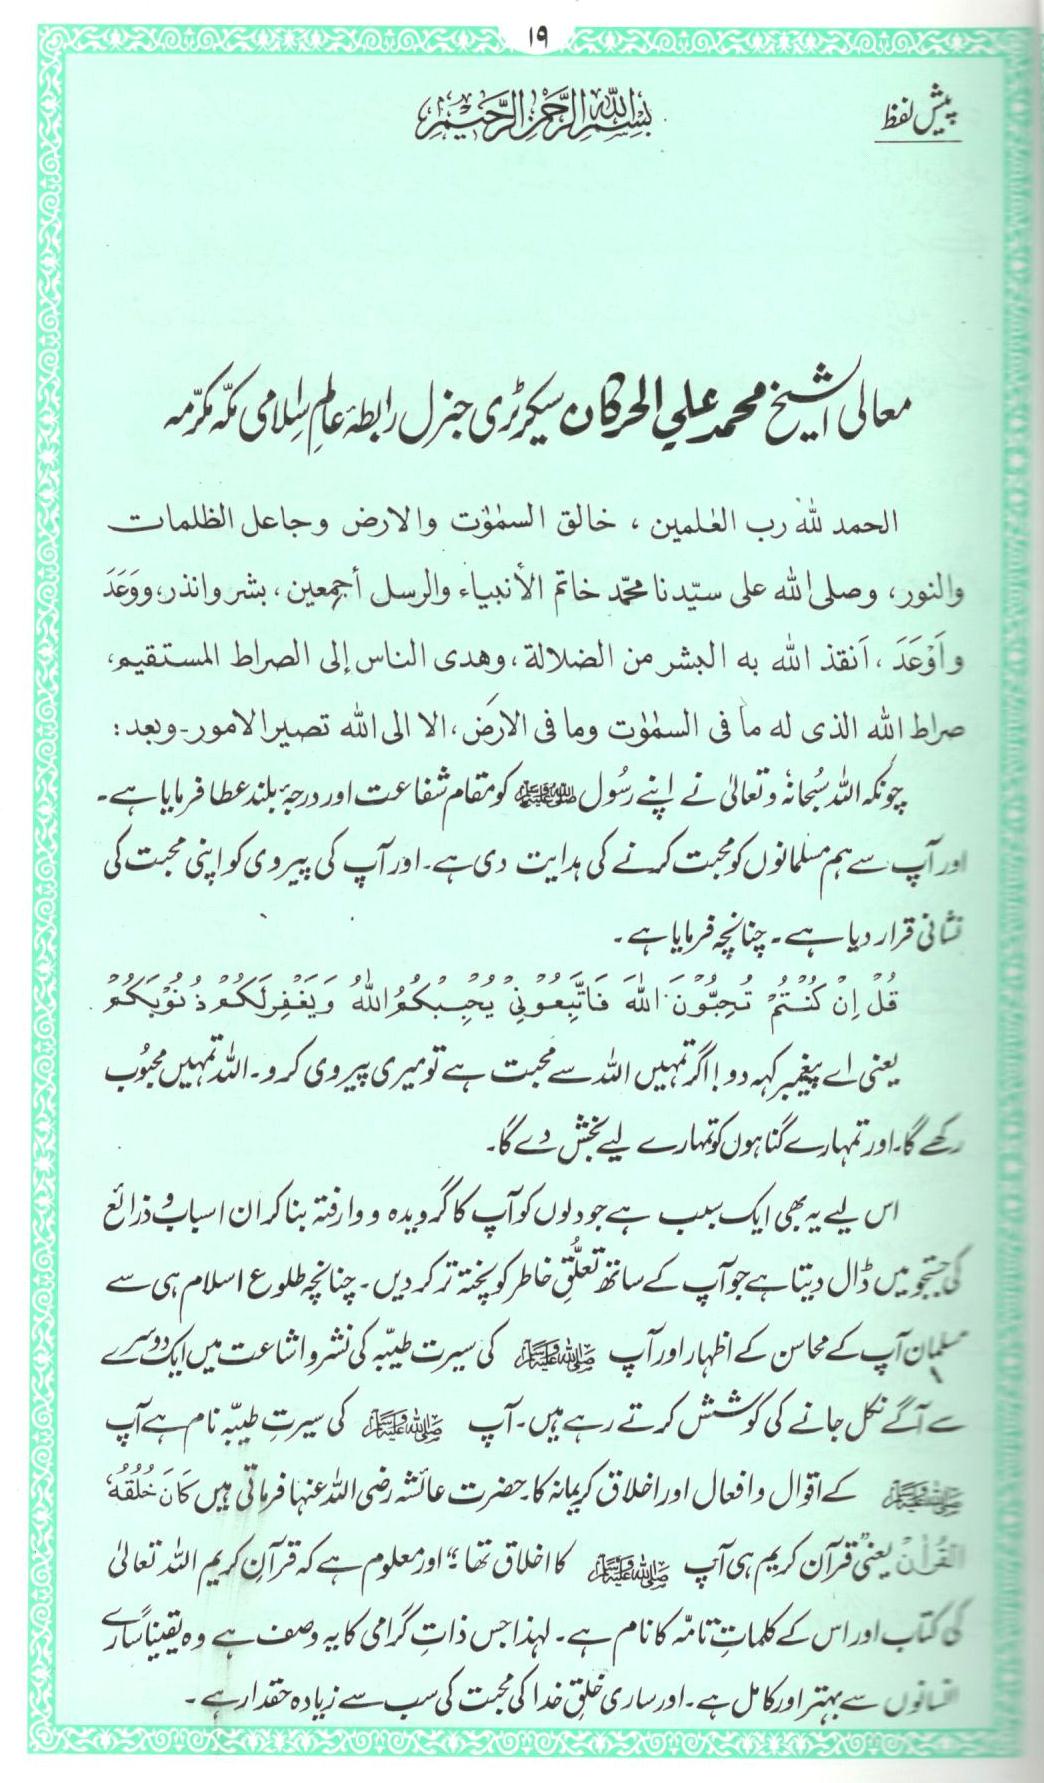 ۱۹
پیش لفظ
بسم الله الرحمن الرحیم
معالی الشیخ محمد علي الحركان سیکرٹری جنرل رابطۂ عالمِ اسلامی مکّہ مکرّمہ
الحمد للہ رب العٰلمین ، خالق السمٰوٰت والارض وجاعل الظلمات
والنور، وصلی اللہ علی سیّدنا محمّد خاتم الأنبیاء والرسل أجمعین، بشر وانذر، ووَعَدَ
واَوْعَدَ ، اَنقذ اللہ به البشر من الضلالة ، وهدى الناس إلى الصراط المستقیم،
صراط اللہ الذی له ما فی السمٰوٰت وما فی الارض، الا الی اللہ تصیر الامور۔ وبعد :
چونکہ اللہ سُبحانہٗ وتعالیٰ نے اپنے رسُول ﷺ کو مقام شفاعت اور درجۂ بلند عطا فرمایا ہے۔
اور آپ سے ہم مسلمانوں کو محبت کرنے کی ہدایت دی ہے۔ اور آپ کی پیروی کو اپنی محبت کی
نشانی قرار دیا ہے۔ چنانچہ فرمایا ہے۔
قُلْ اِنْ کُنْتُمْ تُحِبُّوْنَ اللهَ فَاتَّبِعُوْنِیْ یُحْبِبْکُمُ اللهُ وَیَغْفِرْلَکُمْ ذُنُوْبَکُمْ
یعنی اے پیغمبر کہہ دو! اگر تمہیں اللہ سے محبت ہے تو میری پیروی کرو۔ اللہ تمہیں محبُوب
رکھے گا۔ اور تمہارے گناہوں کو تمہارے لیے بخش دے گا۔
اس لیے یہ بھی ایک سبب ہے جو دلوں کو آپ کا گرویدہ و وارفتہ بنا کر ان اسباب و ذرائع
کی جستجو میں ڈال دیتا ہے جو آپ کے ساتھ تعلُّقِ خاطر کو پختہ تر کر دیں۔ چنانچہ طلوع اسلام ہی سے
مسلمان آپ کے محاسن کے اظہار اور آپ ﷺ کی سیرت طیبّہ کی نشر و اشاعت میں ایک دوسرے
سے آگے نکل جانے کی کوشش کرتے رہے ہیں۔ آپ ﷺ کی سیرتِ طیبّہ نام ہے آپ
ﷺ کے اقوال و افعال اور اخلاق کریمانہ کا۔ حضرت عائشہ رضی اللہ عنہا فرماتی ہیں کَانَ خُلُقُهُ
القُرْاٰنَ یعنی ”قرآن کریم ہی آپ ﷺ کا اخلاق تھا“؛ اور معلوم ہے کہ قرآنِ کریم اللہ تعالیٰ
کی کتاب اور اس کے کلماتِ تامّہ کا نام ہے۔ لہٰذا جس ذاتِ گرامی کا یہ وصف ہے وہ یقیناً سارے
انسانوں سے بہتر اور کامل ہے۔ اور ساری خلقِ خدا کی محبت کی سب سے زیادہ حقدار ہے۔